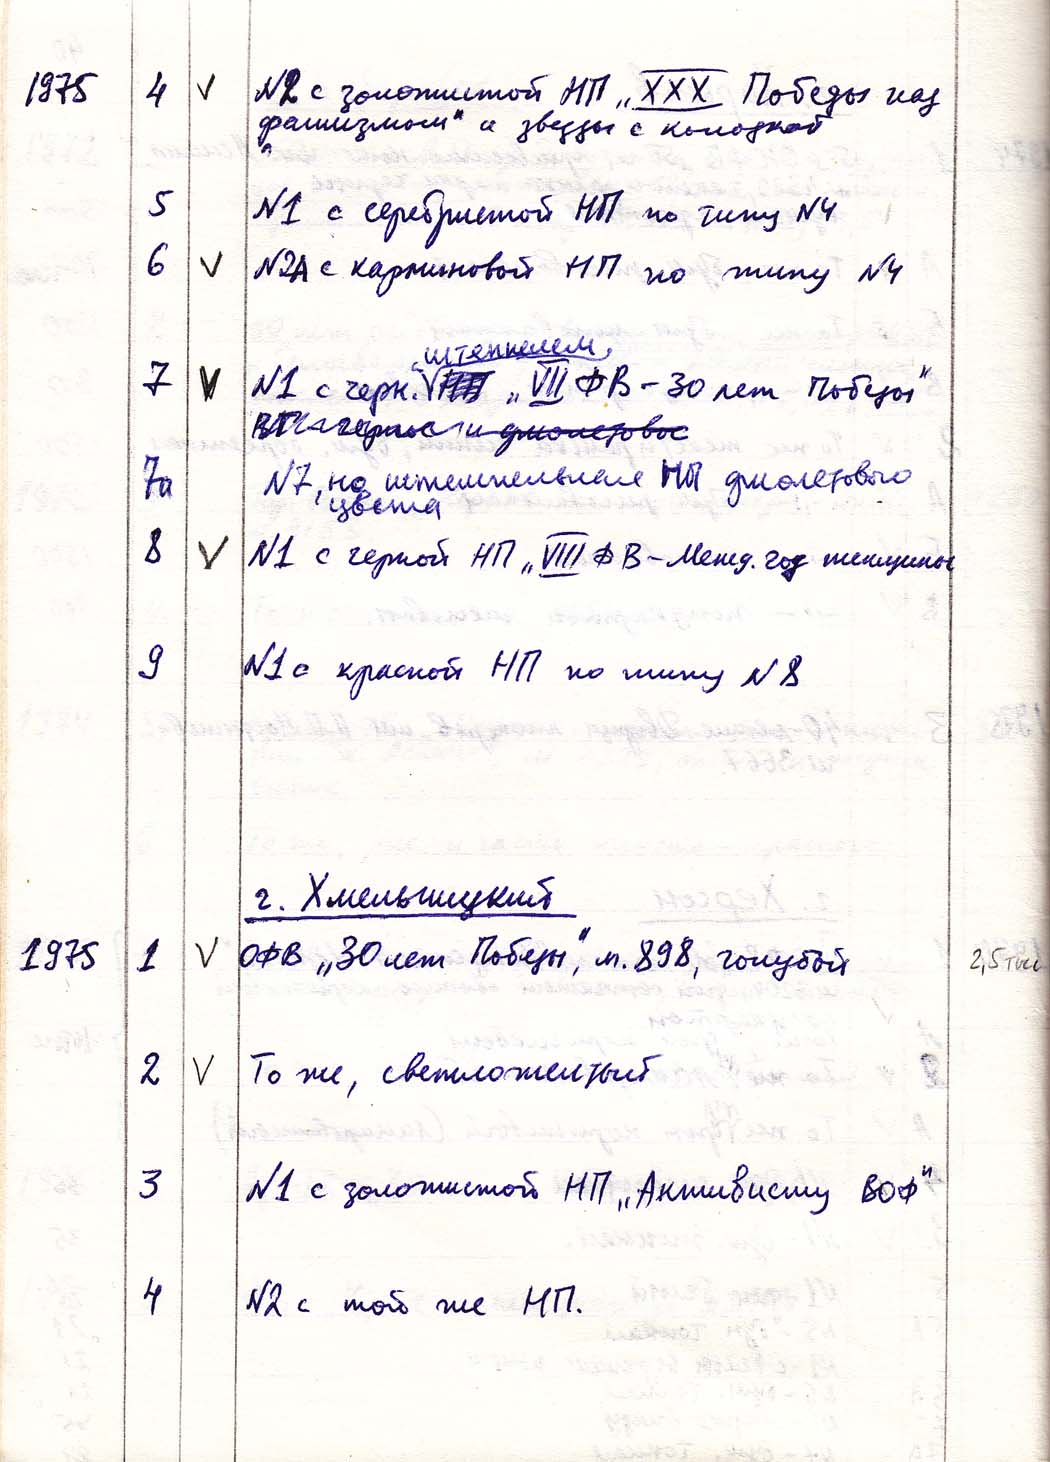 1975 4 V N2 с золотистой НП „XXX Победы над
фашизмом" и звезды с колодкой
5 N1 с серебристой НП по типу N4
6 V N2А с карминовой НП по типу N4
штемпелем
7 V N1 с черн. „VII ФВ – 30 лет Победы"
7а N7, но штемпельная НП фиолетового
цвета
8 V N1 с черной НП „VIII ФВ – Межд. год женщины
9 N1 с красной НП по типу N8
г. Хмельницкий
1975 1 V ОФВ „30 лет Победы", м. 898, голубой 2,5 тыс
2 V То же, светложелтый
3 N1 с золотистой НП „Активисту ВОФ"
4 N2 с той же НП.